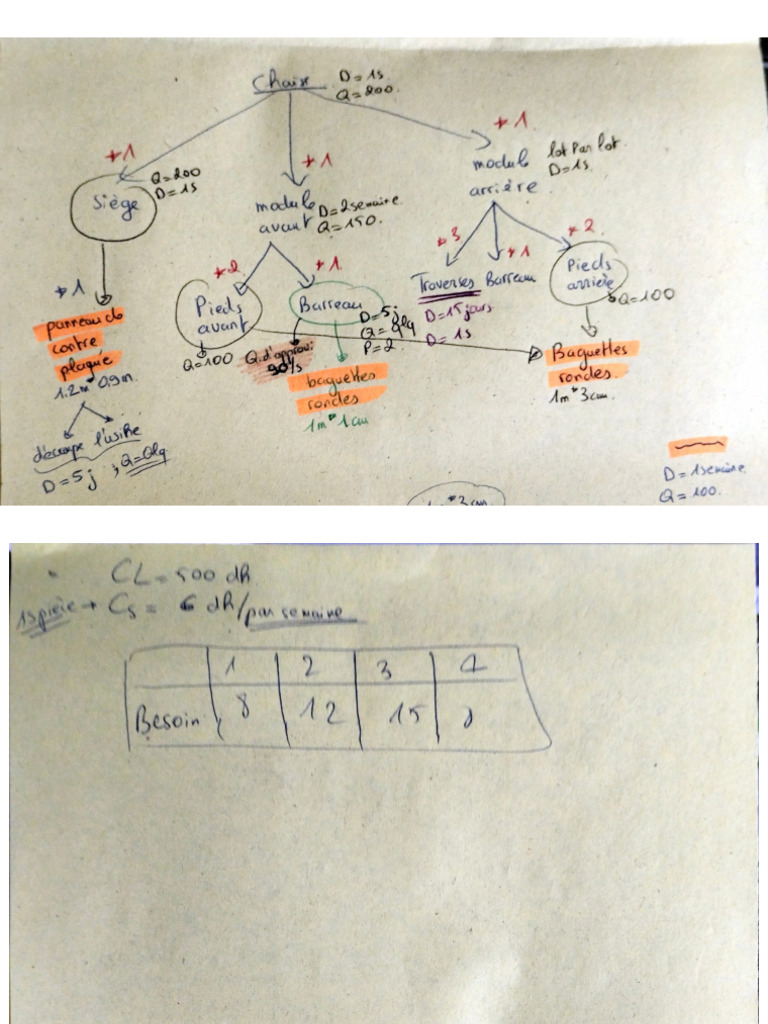 Chaise
D = 1s.
Q = 200.
*1
*1
*1
Siège
Q = 200
D = 1s
module
avant
D = 2 semaine.
Q = 150.
module
arrière
lot par lot.
D = 1s.
*1
panneau de
contre
plaque
1.2m * 0.9m
découpe l'usine
D = 5j ; Q = Qlq
*2
*1
Pieds
avant
Q = 100
Barreau
D = 5j
Q = Qlq
P = 2
Q. d'approvi:
90%
baguettes
rondes
1m * 1cm
*3
*1
*2
Traverses
Barreau
Pieds
arrière
D = 15 jours
D = 1s
Q = 100
Baguettes
rondes.
1m * 3cm.
D = 1 semaine
Q = 100.
CL = 500 dh
Cs = 6 dh/par semaine
1 2 3 4
Besoin 8 12 15